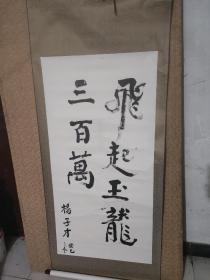 飛起玉龍
三百萬
楊子才